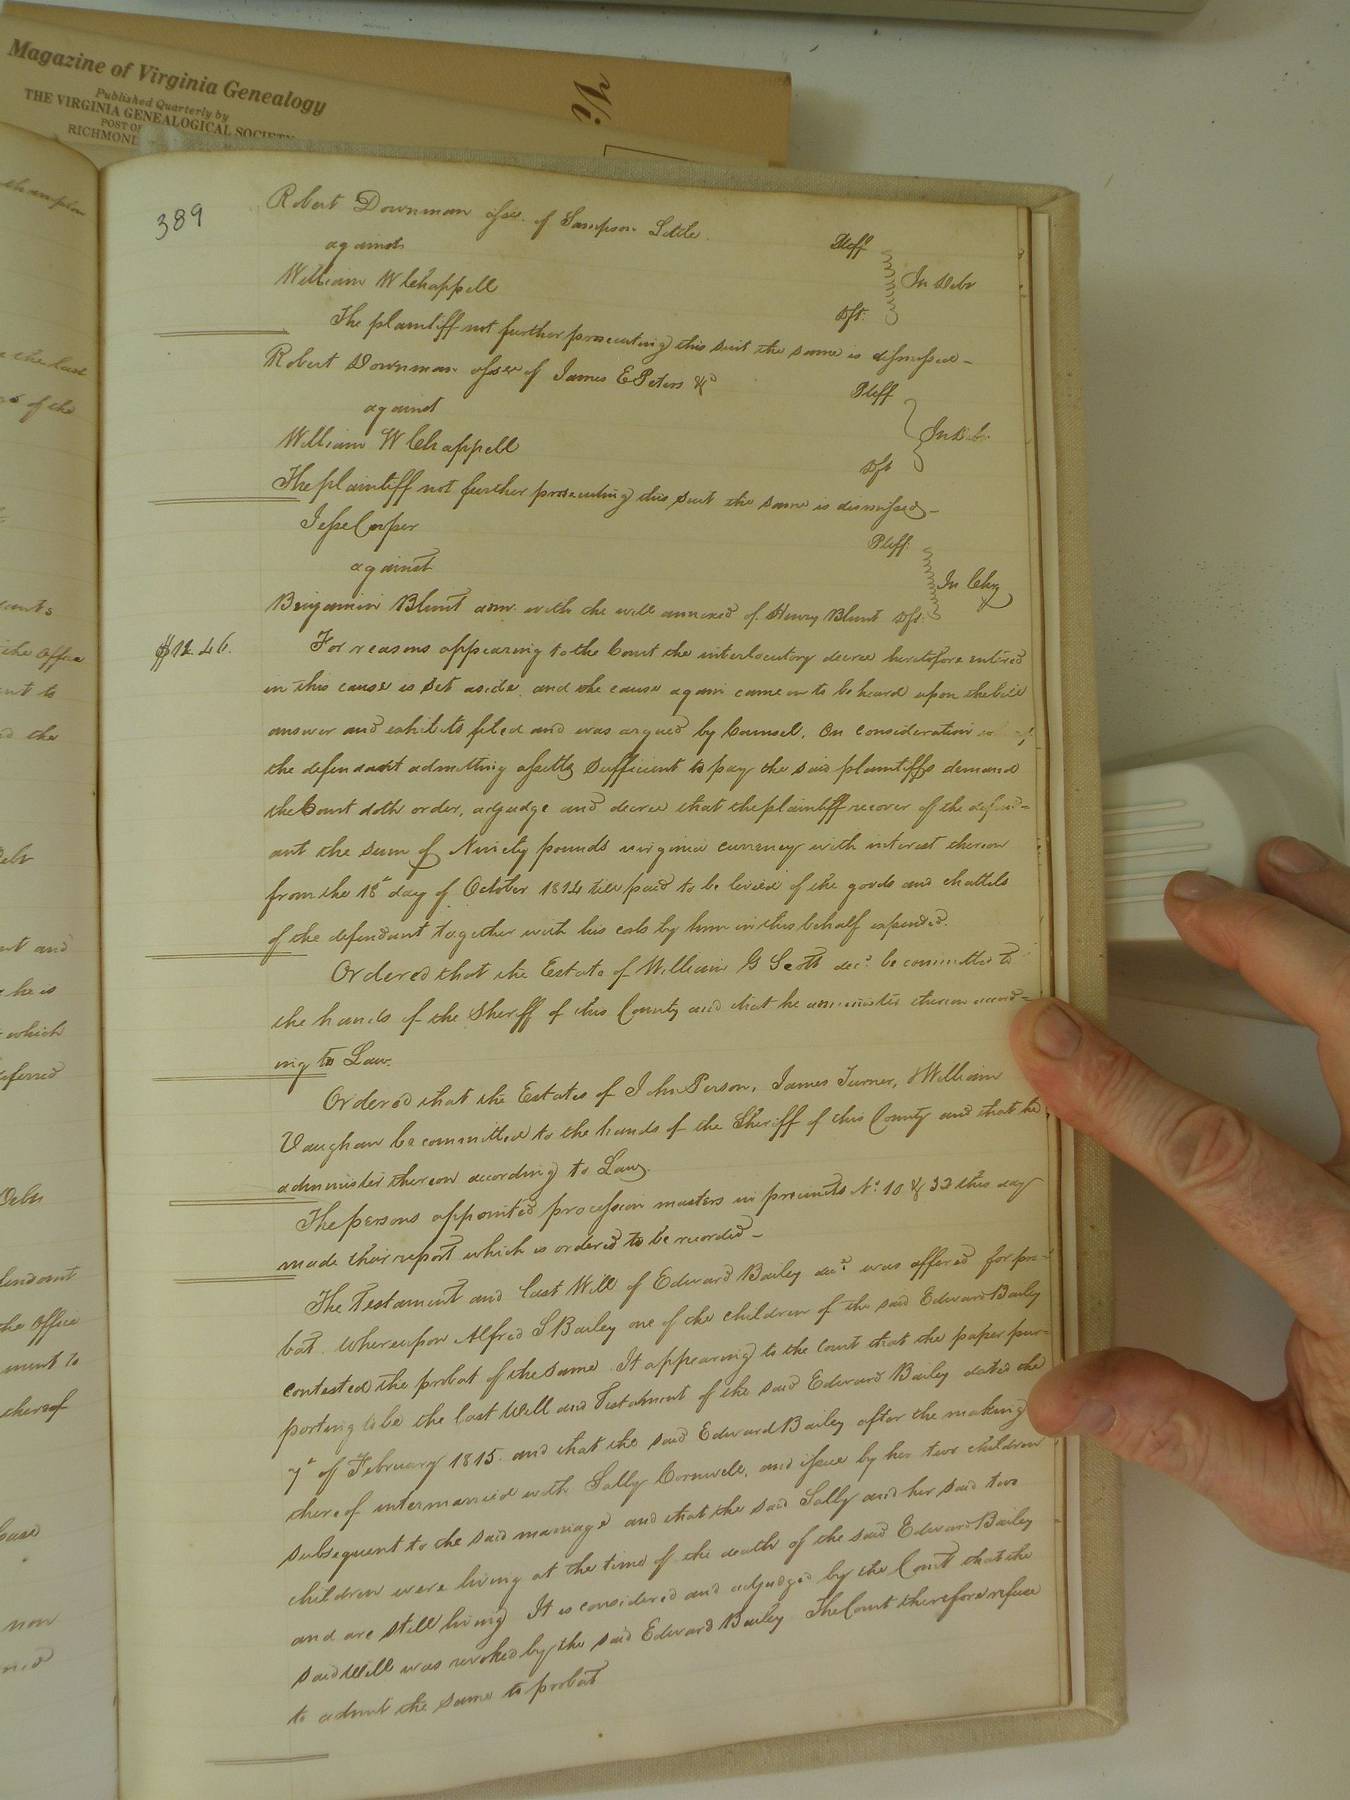 Magazine of Virginia Genealogy
Published Quarterly by
THE VIRGINIA GENEALOGICAL SOCIETY
POST OF
RICHMOND
Vi
389
Robert Downman assee. of Sampson Little Pleff
against
William W Chappell Dft. In Debt
The plaintiff not further prosecuting this suit the same is dismissed -
Robert Downman assee of James E Peters &c Pleff
against In Debt
William W Chappell Dft
The plaintiff not further prosecuting this suit the same is dismissed -
Jesse Pleff.
against In Chy
Benjamin Blunt adm. with the will annexed of Henry Blunt Dft.
$12.46. For reasons appearing to the Court the interlocutory decree heretofore entered
in this cause is set aside and the cause again came on to be heard upon the bill
answer and exhibits filed and was argued by Counsel. On consideration
the defendant admitting assetts sufficient to pay the said plaintiffs demand
the Court doth order, adjudge and decree that the plaintiff recover of the defend=
ant the sum of Ninety pounds virginia currency with interest thereon
from the 18th day of October 1814 till paid to be levied of the goods and chattels
of the defendant together with his costs by him in this behalf expended.
Ordered that the Estate of William G Scott decd. be committed to
the hands of the Sheriff of this County and that he administer thereon accord=
ing to Law.
Ordered that the Estates of John Person, James Turner, & William
Vaughan be committed to the hands of the Sheriff of this County and that he
administer thereon according to Law.
The persons appointed procession masters in precincts No. 10 & 33 this day
made their report which is ordered to be recorded -
The Testament and last Will of Edward Bailey decd. was offered for pro-
bat. whereupon Alfred S Bailey one of the children of the said Edward Bailey
contested the probat of the same. It appearing to the Court that the paper pur-
porting to be the last Will and Testament of the said Edward Bailey dated the
7th of February 1815. and that the said Edward Bailey after the making
thereof intermarried with Sally Cornwell, and issue by her two children
subsequent to the said marriage and that the said Sally and her said two
children were living at the time of the death of the said Edward Bailey
and are still living. It is considered and adjudged by the Court that the
said Will was revoked by the said Edward Bailey The Court therefore refuse
to admit the same to probat